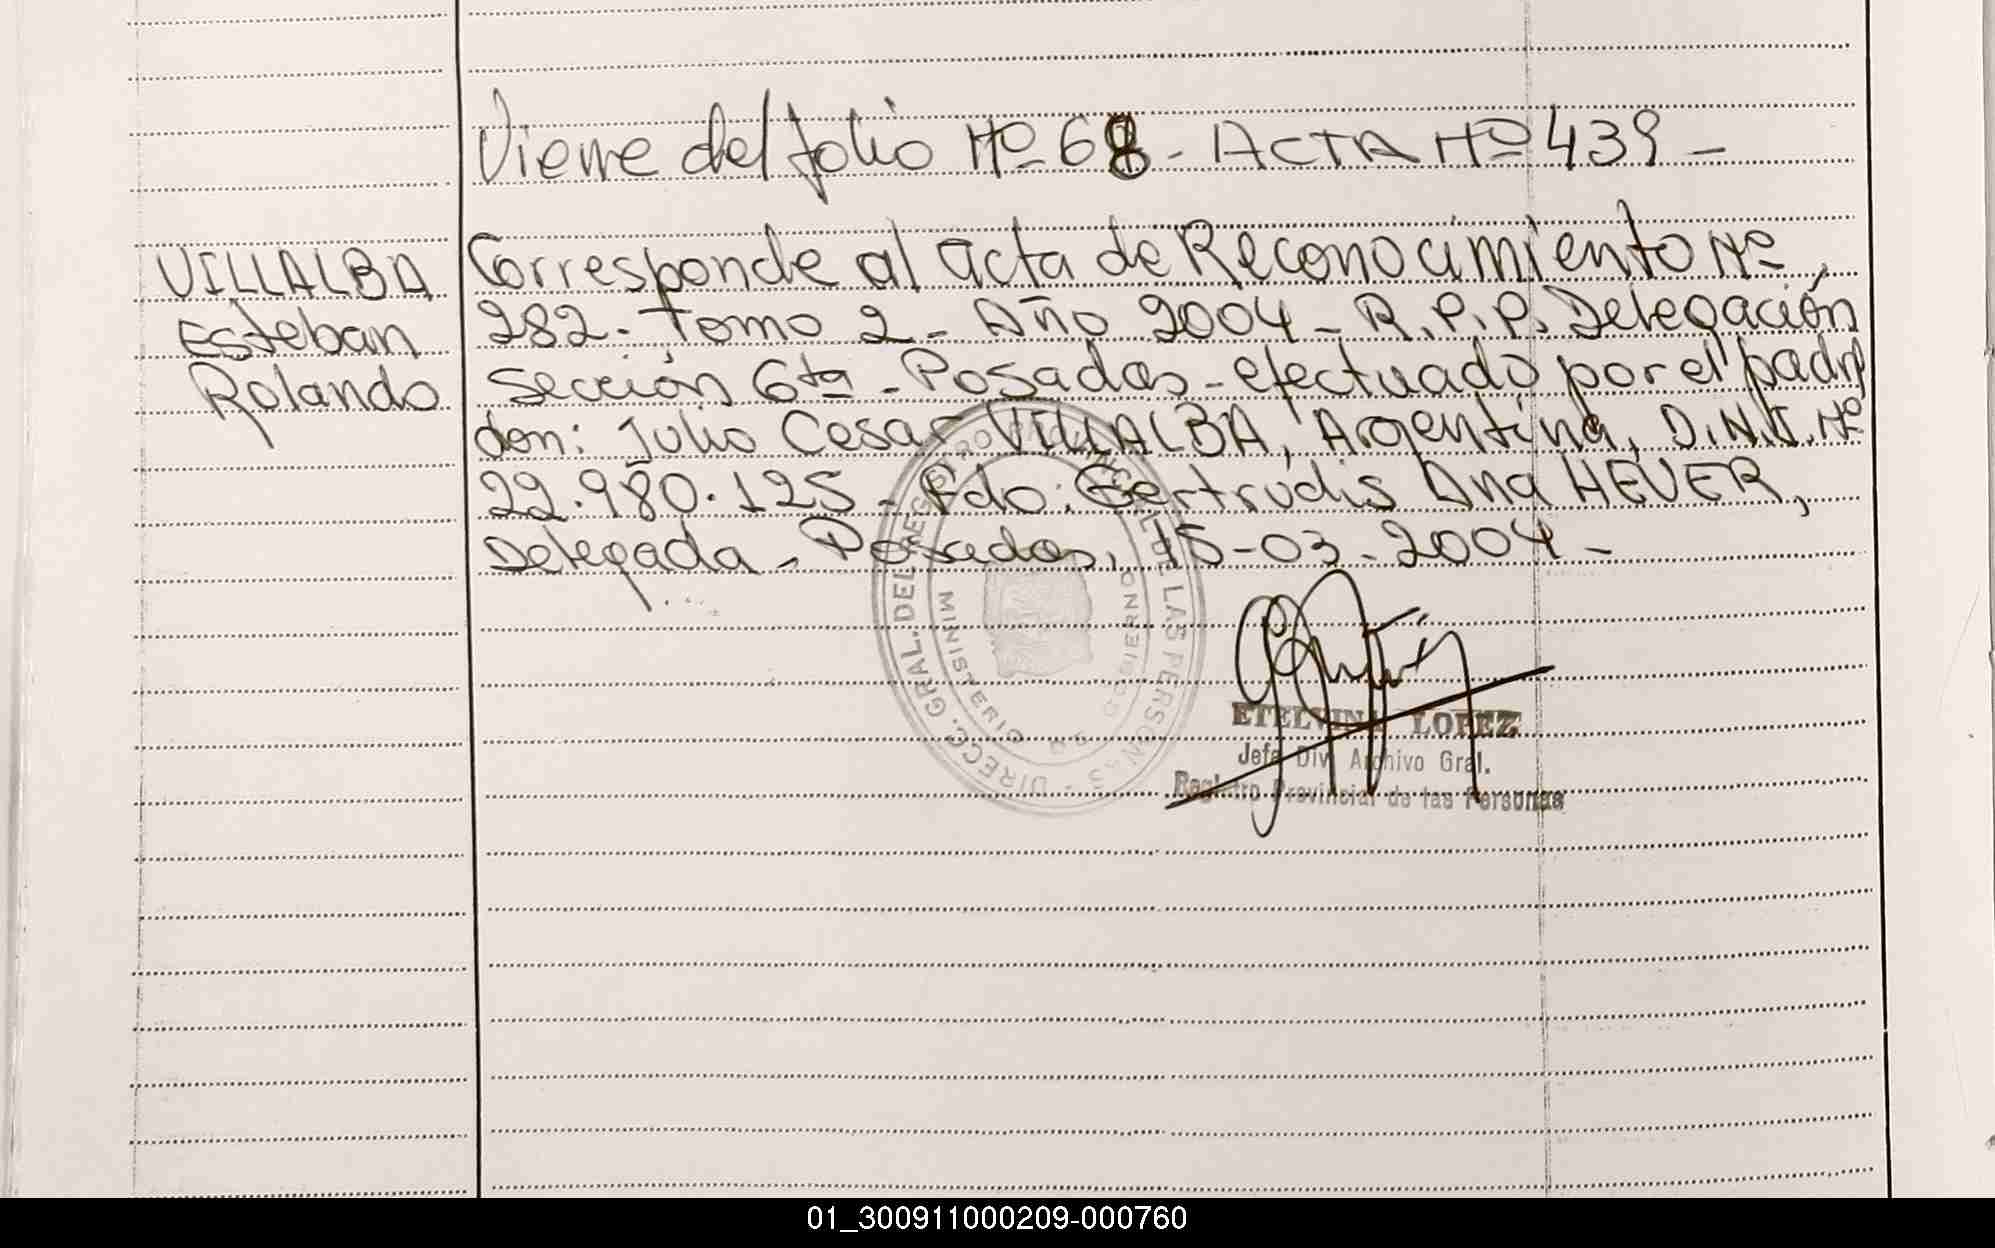 Viene del folio Nº 68 - ACTA Nº 439 -
VILLALBA
Esteban
Rolando
Corresponde al acta de Reconocimiento Nº
282. Tomo 2 - Año 2004 - R.P.P. Delegación
Sección 6ta - Posadas - efectuado por el padre
don: Julio Cesar VILLALBA, Argentina, D.N.I. Nº
22.980.125 - Fdo: Gertrudis Ana HEVER,
Delegada - Posadas, 15-03-2004 -
DIRECC. GRAL. DEL REGISTRO PROVINCIAL DE LAS PERSONAS
MINISTERIO DE GOBIERNO
ETELVINA LOPEZ
Jefe Div. Archivo Gral.
Registro Provincial de las Personas
01_300911000209-000760